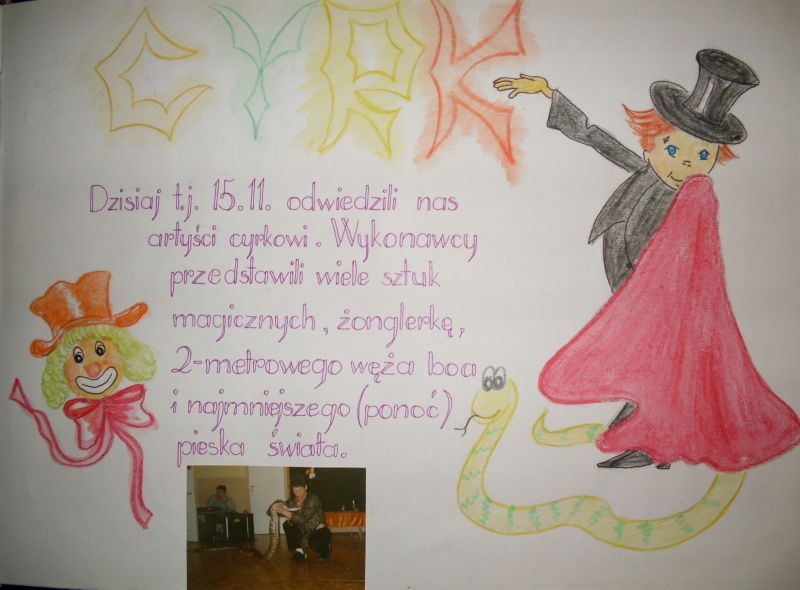 CYRK
Dzisiaj t.j. 15.11. odwiedzili nas
artyści cyrkowi. Wykonawcy
przedstawili wiele sztuk
magicznych, żonglerkę,
2-metrowego węża boa
i najmniejszego (ponoć)
pieska świata.